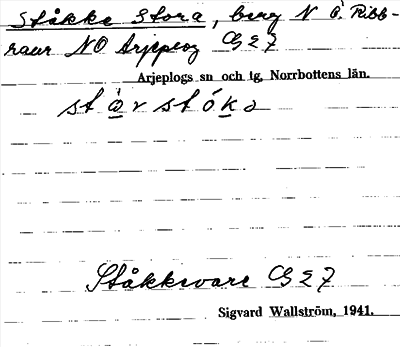 Ståkke Stora, berg N ö. Ribb-
raur NO Arjeplog G27
Arjeplogs sn och tg, Norrbottens län.
Ståkkevare G27
Sigvard Wallström, 1941.